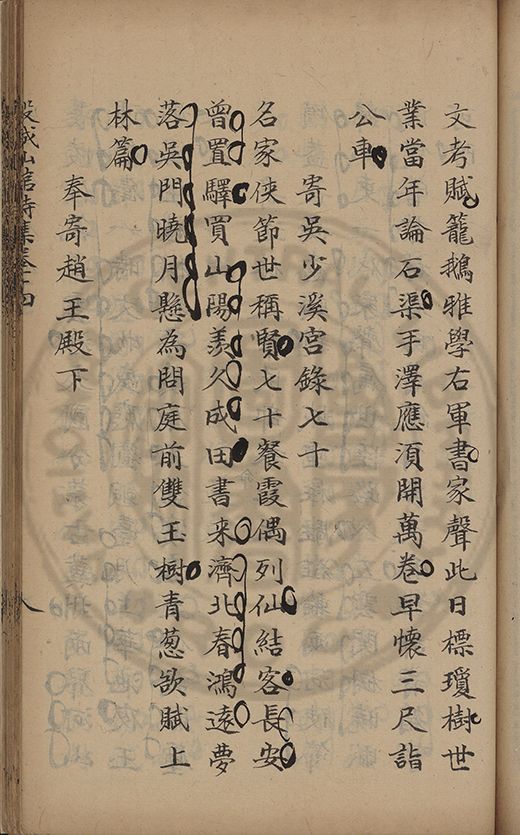 文考賦籠鵝雅學右軍書家聲此日標瓊樹世
業當年論石渠手澤應須開萬卷早懷三尺詣
公車
寄吳少溪宮錄七十
名家俠節世稱賢七十餐霞偶列仙結客長安
曾置驛買山陽羨久成田書来濟北春鴻遠夢
落吳門曉月懸為問庭前雙玉樹青葱欲賦上
林篇
奉寄趙王殿下
城山詩集卷十四
八